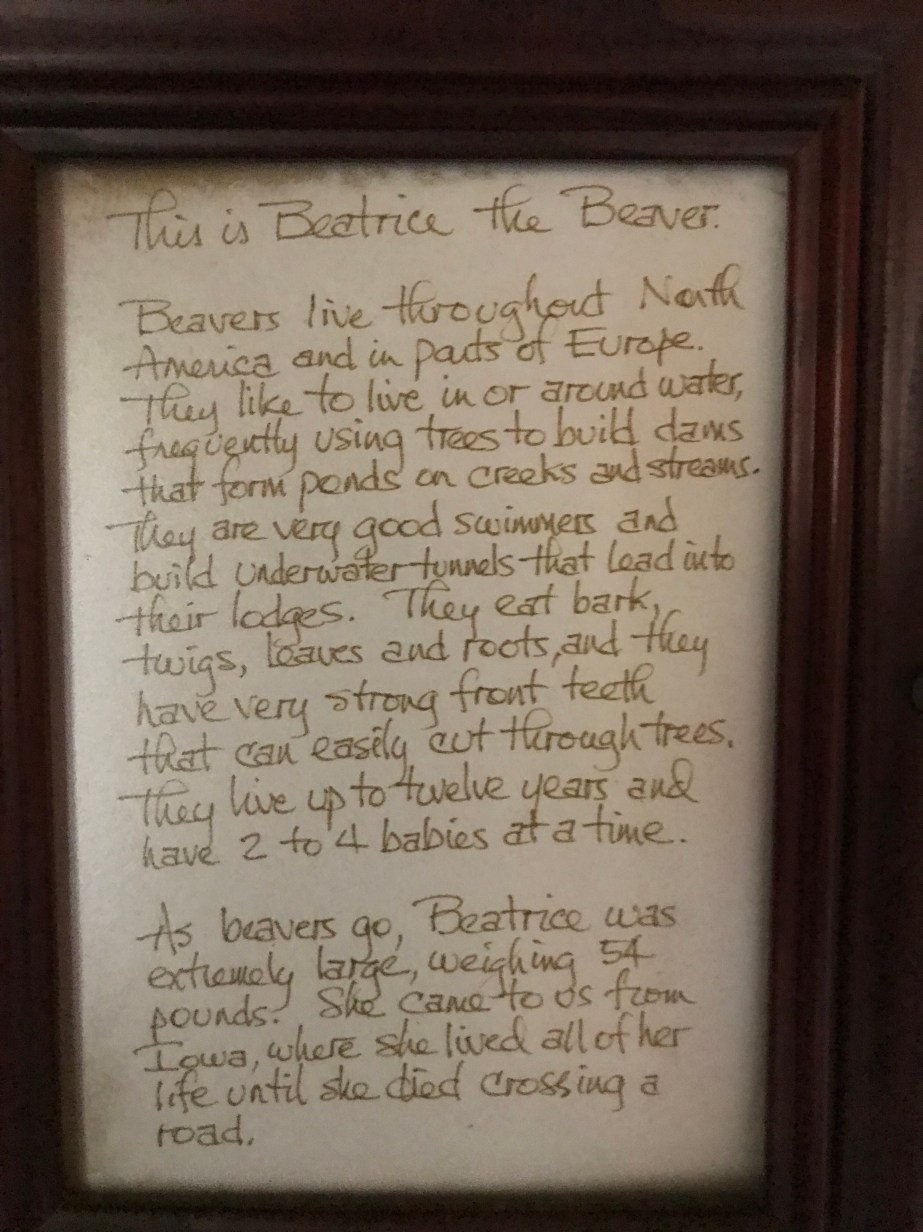 This is Beatrice the Beaver.
Beavers live throughout North
America and in parts of Europe.
They like to live in or around water,
frequently using trees to build dams
that form ponds on creeks and streams.
They are very good swimmers and
build underwater tunnels that lead into
their lodges. They eat bark,
twigs, leaves and roots, and they
have very strong front teeth
that can easily cut through trees.
They live up to twelve years and
have 2 to 4 babies at a time.
As beavers go, Beatrice was
extremely large, weighing 54
pounds. She came to us from
Iowa, where she lived all of her
life until she died crossing a
road.